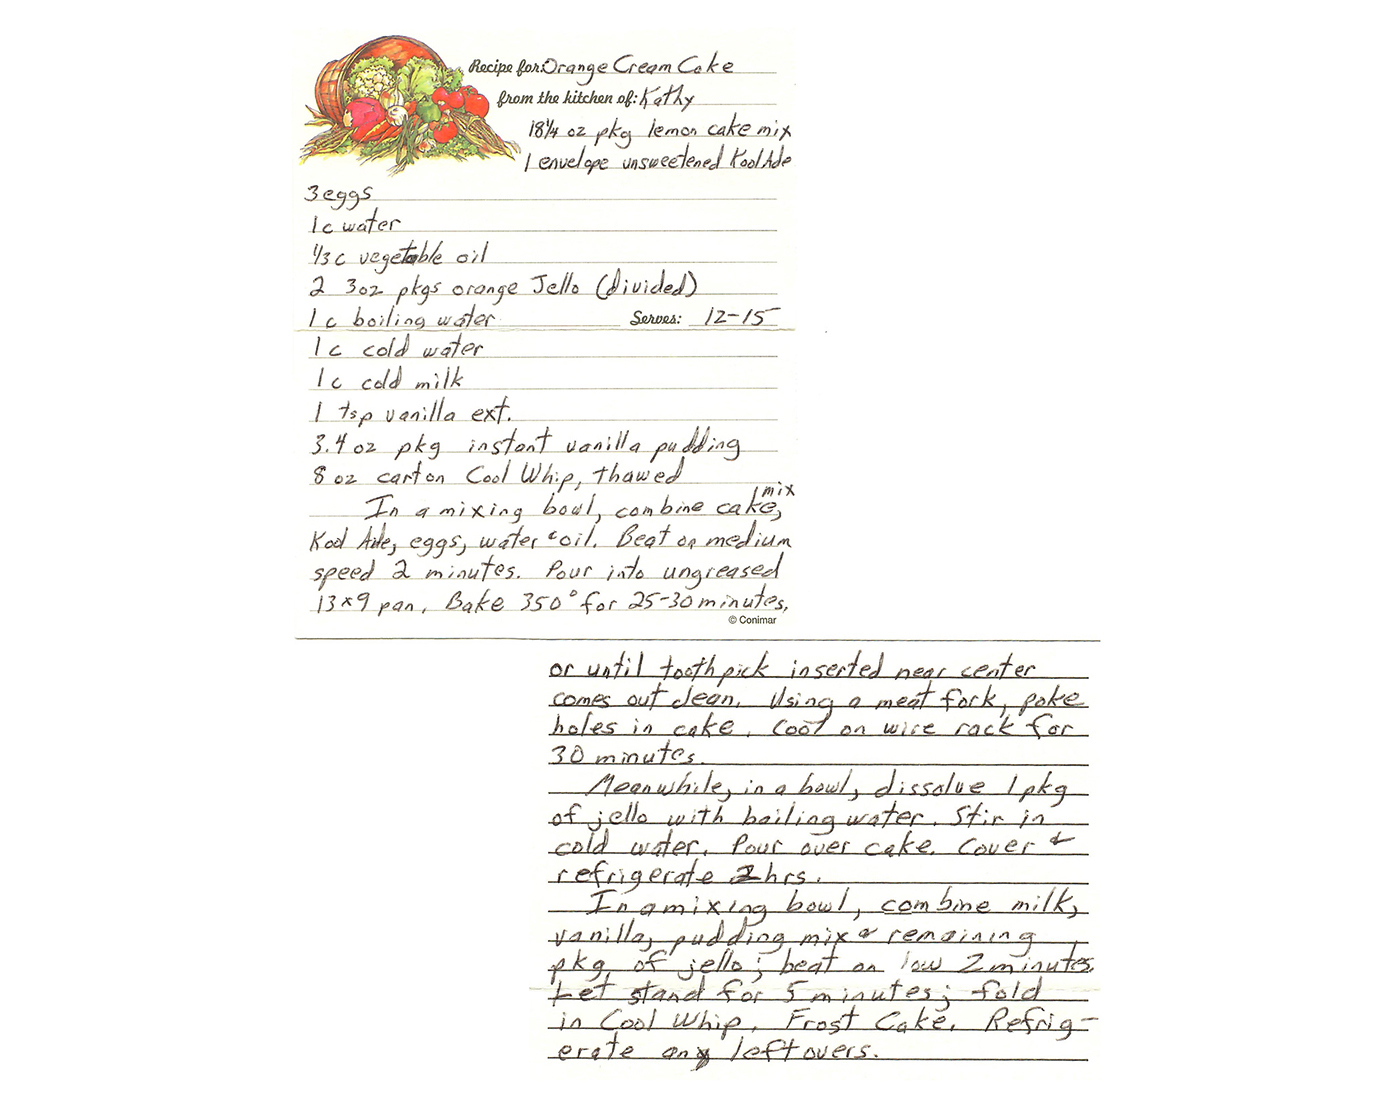 Recipe for: Orange Cream Cake
from the kitchen of: Kathy
18 1/4 oz pkg lemon cake mix
1 envelope unsweetened Kool Ade
3 eggs
1 c water
1/3 c vegetable oil
2 3oz pkgs orange Jello (divided)
1 c boiling water Serves: 12-15
1 c cold water
1 c cold milk
1 tsp vanilla ext.
3.4 oz pkg instant vanilla pudding
8 oz carton Cool Whip, thawed
In a mixing bowl, combine cake mix,
Kool Ade, eggs, water & oil. Beat on medium
speed 2 minutes. Pour into ungreased
13x9 pan. Bake 350° for 25-30 minutes,
© Conimar
or until toothpick inserted near center
comes out clean. Using a meat fork, poke
holes in cake. Cool on wire rack for
30 minutes.
Meanwhile, in a bowl, dissolve 1 pkg
of jello with boiling water. Stir in
cold water. Pour over cake. Cover &
refrigerate 2 hrs.
In a mixing bowl, combine milk,
vanilla, pudding mix & remaining
pkg. of jello; beat on low 2 minutes.
Let stand for 5 minutes; fold
in Cool Whip. Frost Cake. Refrig-
erate any leftovers.